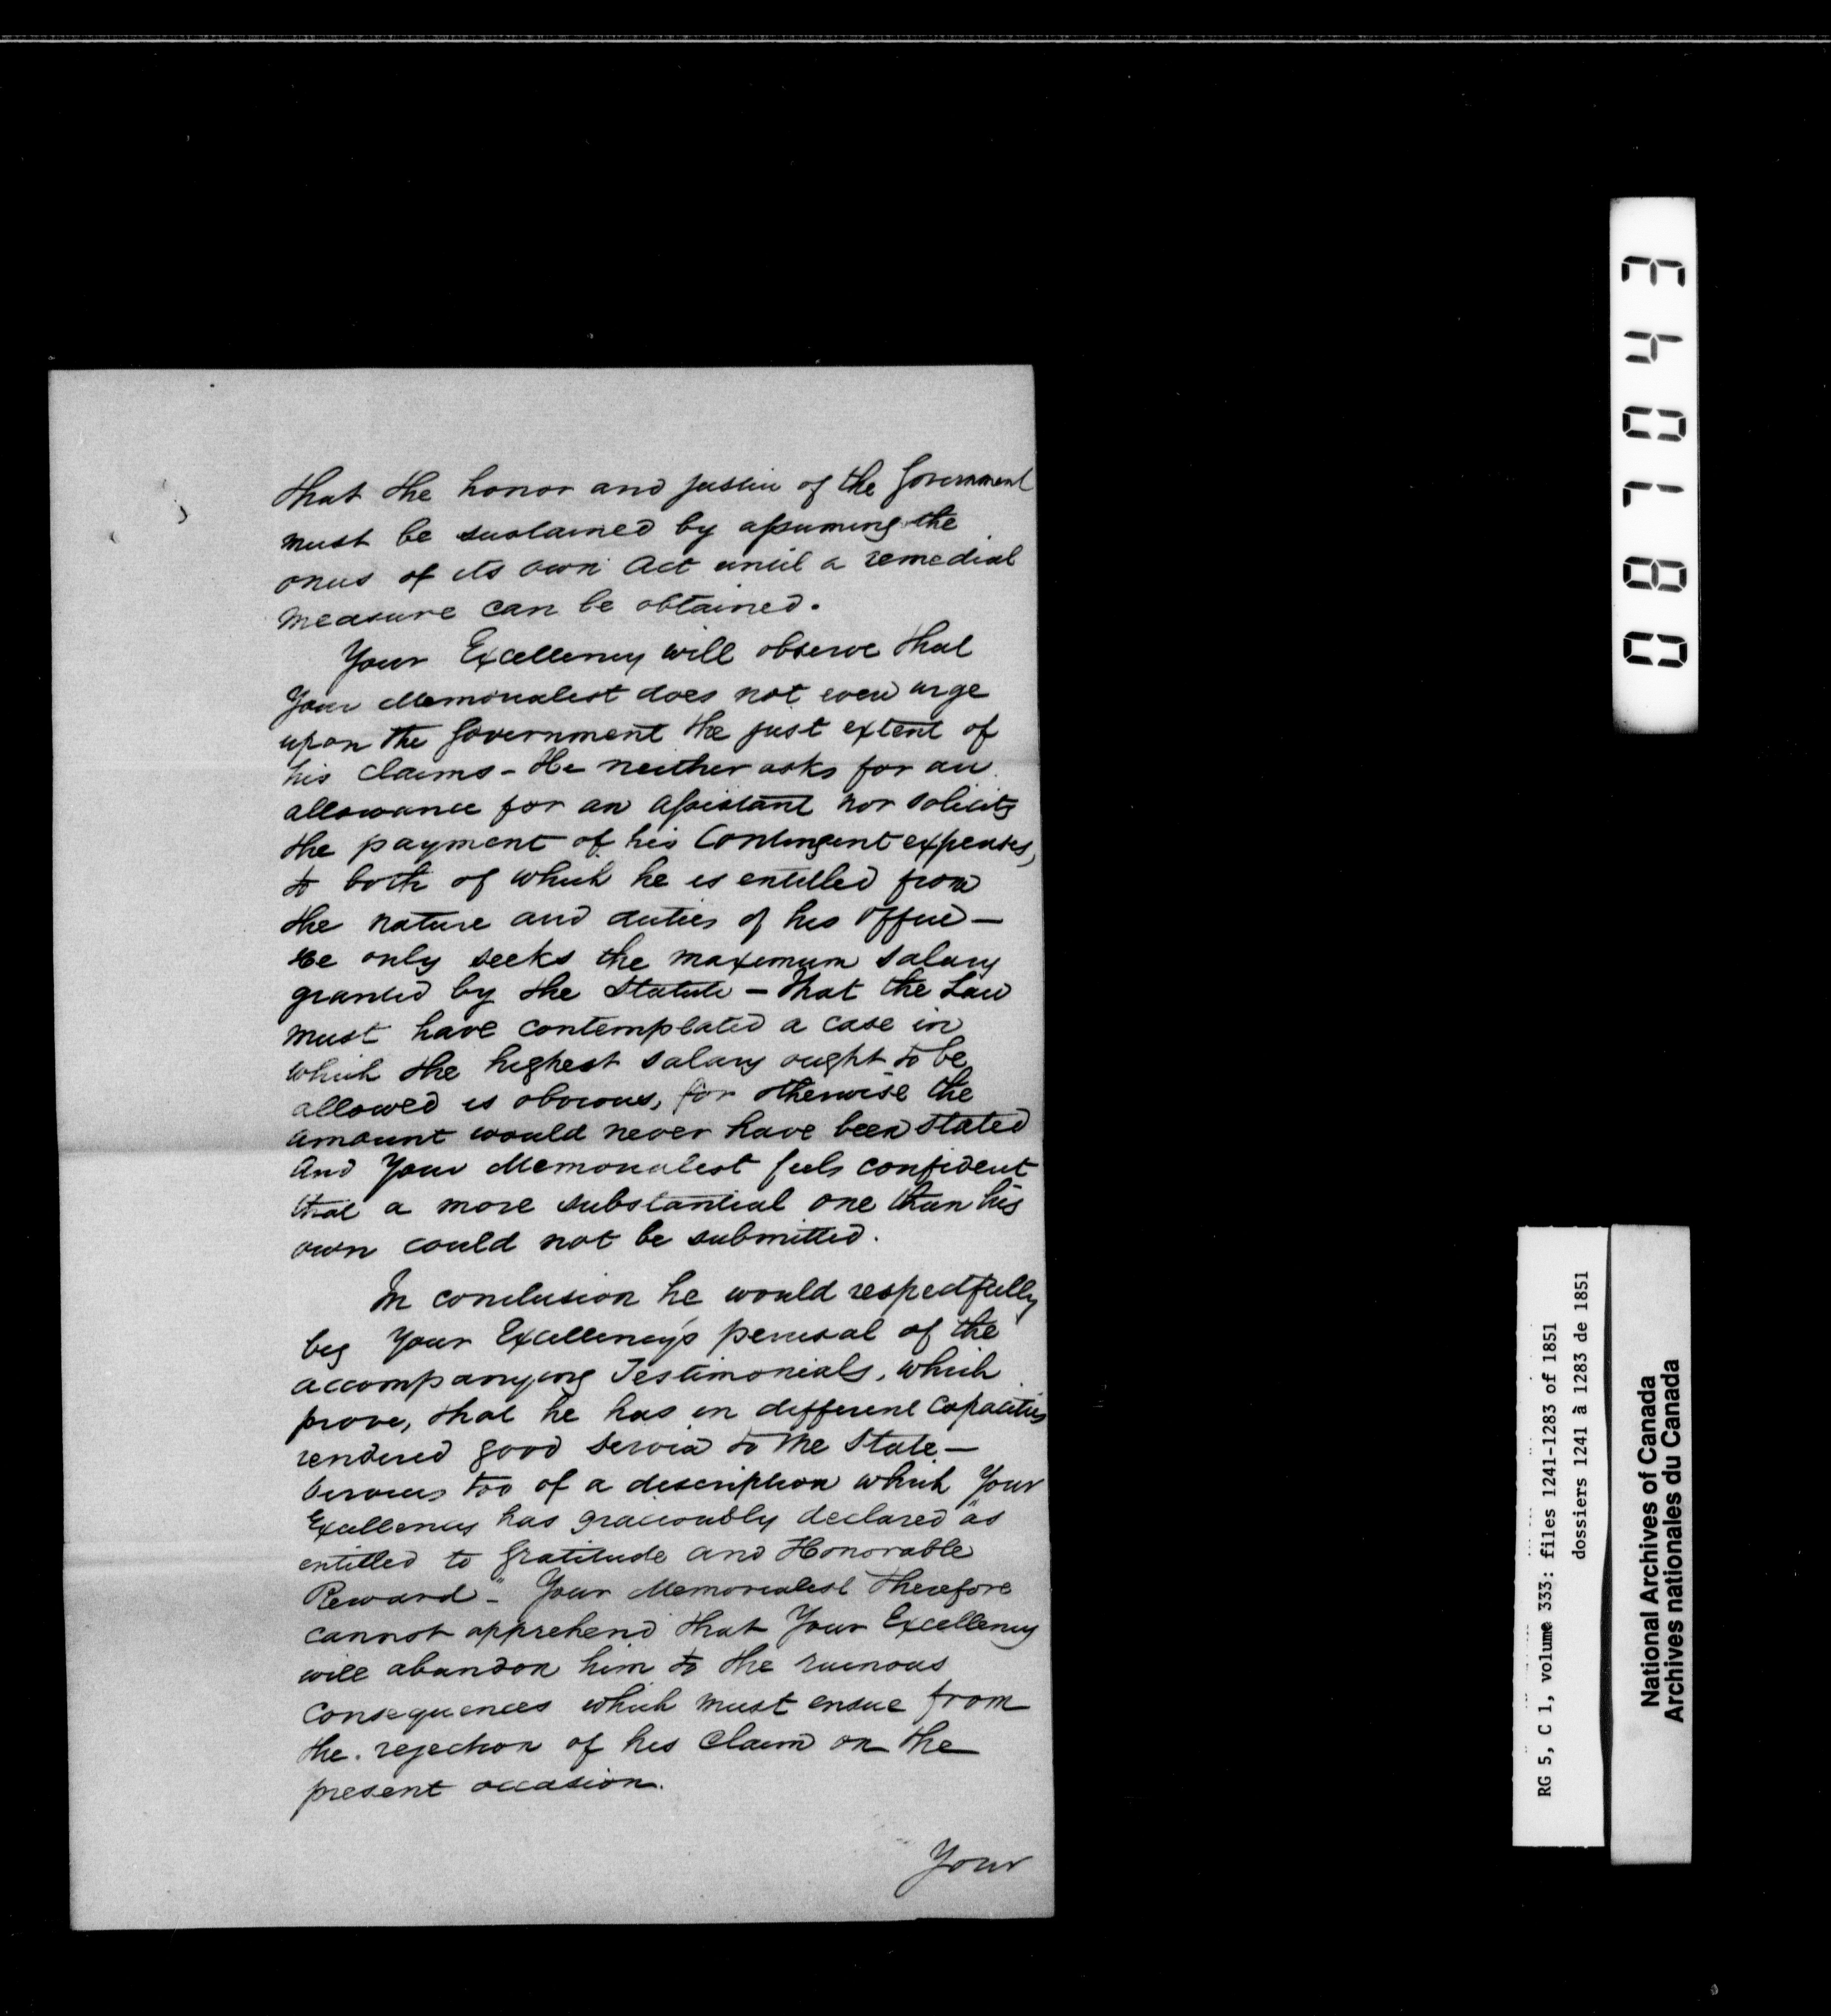 that the honor and justice of the Government
must be sustained by assuming the
onus of its own Act until a remedial
measure can be obtained.
Your Excellency will observe that
Your Memorialist does not even urge
upon the Government the just extent of
his claims - He neither asks for an
allowance for an assistant nor solicits
the payment of his Contingent expenses,
to both of which he is entitled from
the nature and duties of his office —
He only seeks the maximum salary
granted by the Statute - that the Law
must have contemplated a case in
which the highest salary ought to be
allowed is obvious, for otherwise the
amount would never have been stated
And Your Memorialist feels confident
that a more substantial one than his
own could not be submitted.
In conclusion he would respectfully
beg Your Excellency's perusal of the
accompanying Testimonials, which
prove, that he has in different Capacities
rendered good service to the State —
Services too of a description which Your
Excellency has graciously declared "as
entitled to Gratitude and Honorable
Reward" - Your Memorialist therefore
cannot apprehend that Your Excellency
will abandon him to the ruinous
consequences which must ensue from
the rejection of his Claim on the
present occasion.
Your
0 8 1 0 4 3
RG 5, C 1, volume 333: files 1241-1283 of 1851
dossiers 1241 à 1283 de 1851
National Archives of Canada
Archives nationales du Canada